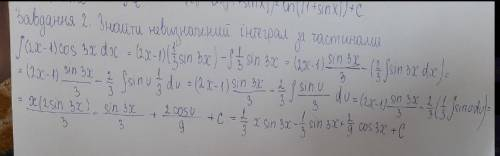 ln(1+sinx))+C
Завдання 2. Знайти невизначений інтеграл за частинами
∫(2x-1)cos 3x dx = (2x-1)(1/3 sin 3x) - ∫1/3 sin 3x = (2x-1) sin 3x/3 - (2/3 ∫sin 3x dx) =
= (2x-1) sin 3x/3 - 2/3 ∫ sin u 1/3 du = (2x-1) sin 3x/3 - 2/3 ∫ sin u/3 du = (2x-1) sin 3x/3 - 2/3 (1/3 ∫sin u du) =
= x(2 sin 3x)/3 - sin 3x/3 + 2cos u/9 + C =